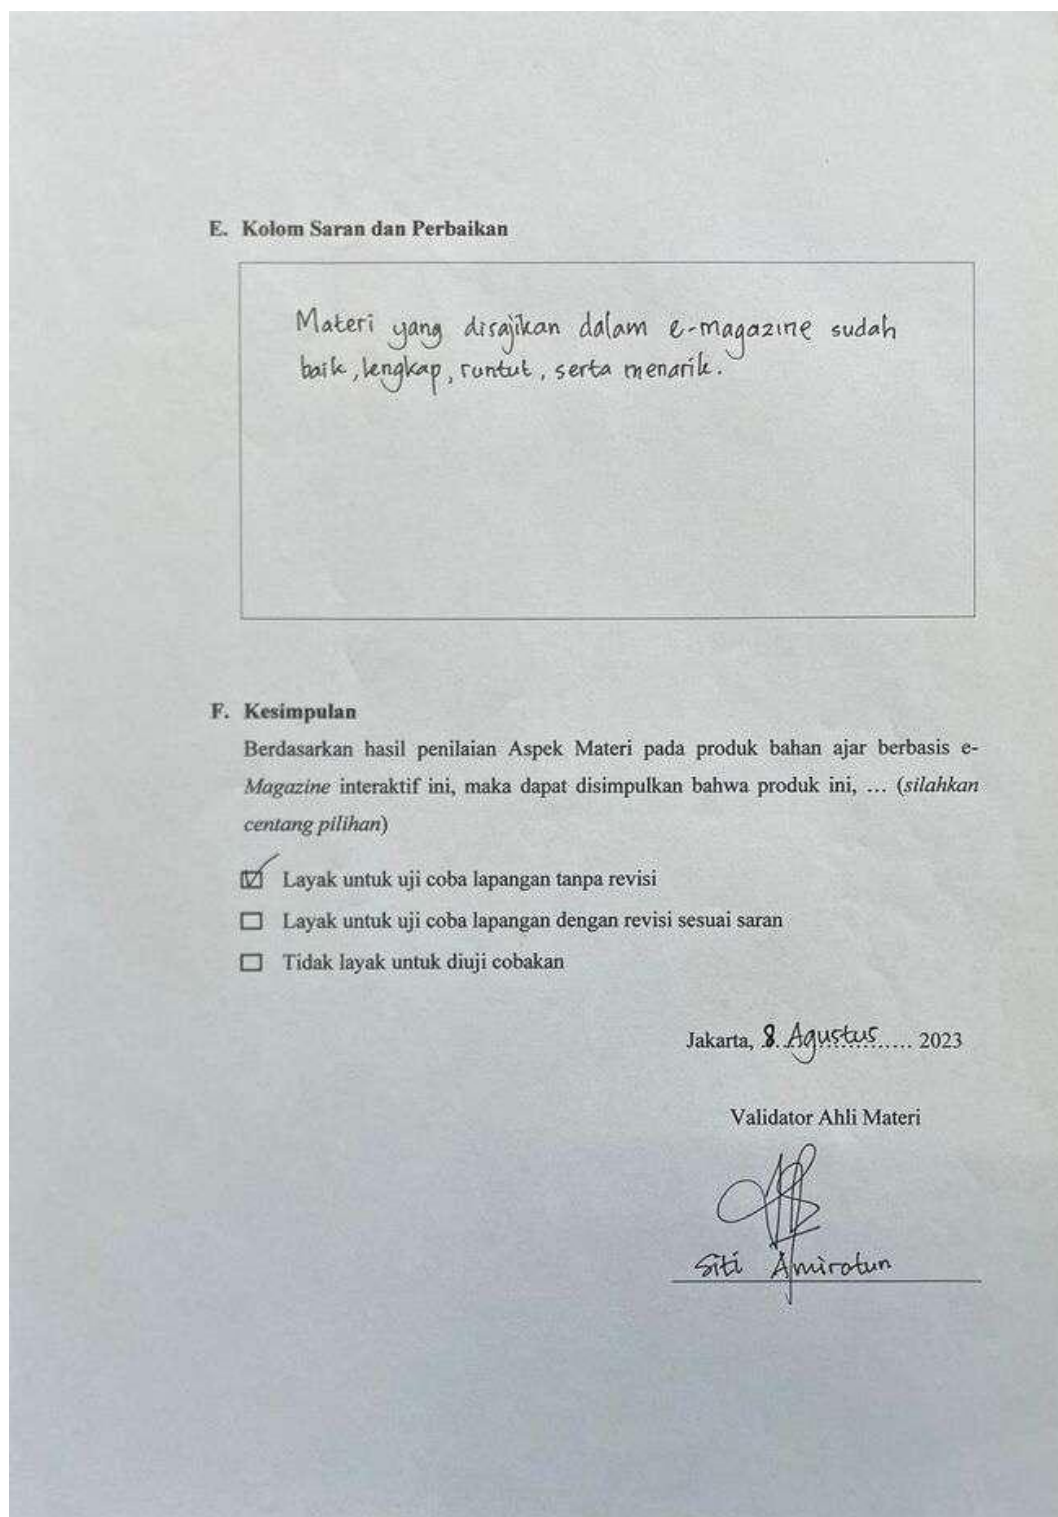 E. Kolom Saran dan Perbaikan
Materi yang disajikan dalam e-magazine sudah
baik, lengkap, runtut, serta menarik.
F. Kesimpulan
Berdasarkan hasil penilaian Aspek Materi pada produk bahan ajar berbasis e-
Magazine interaktif ini, maka dapat disimpulkan bahwa produk ini, ... (silahkan
centang pilihan)
Layak untuk uji coba lapangan tanpa revisi
Layak untuk uji coba lapangan dengan revisi sesuai saran
Tidak layak untuk diuji cobakan
Jakarta, 8 Agustus 2023
Validator Ahli Materi
Siti Amirotun